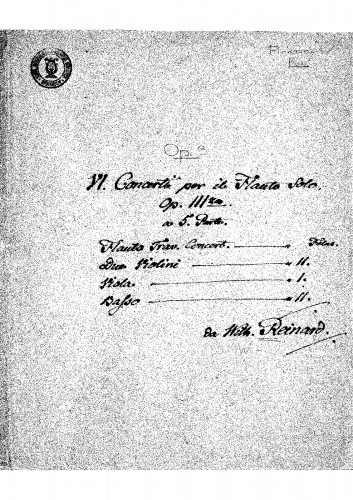 Op.
VI. Concerti per il Flauto Solo.
Op. III za.
a 5. Parte.
Flauto Trav. Concert.
Due Violini " II.
Viola " I.
Basso " II.
da Wilh. Reinard.